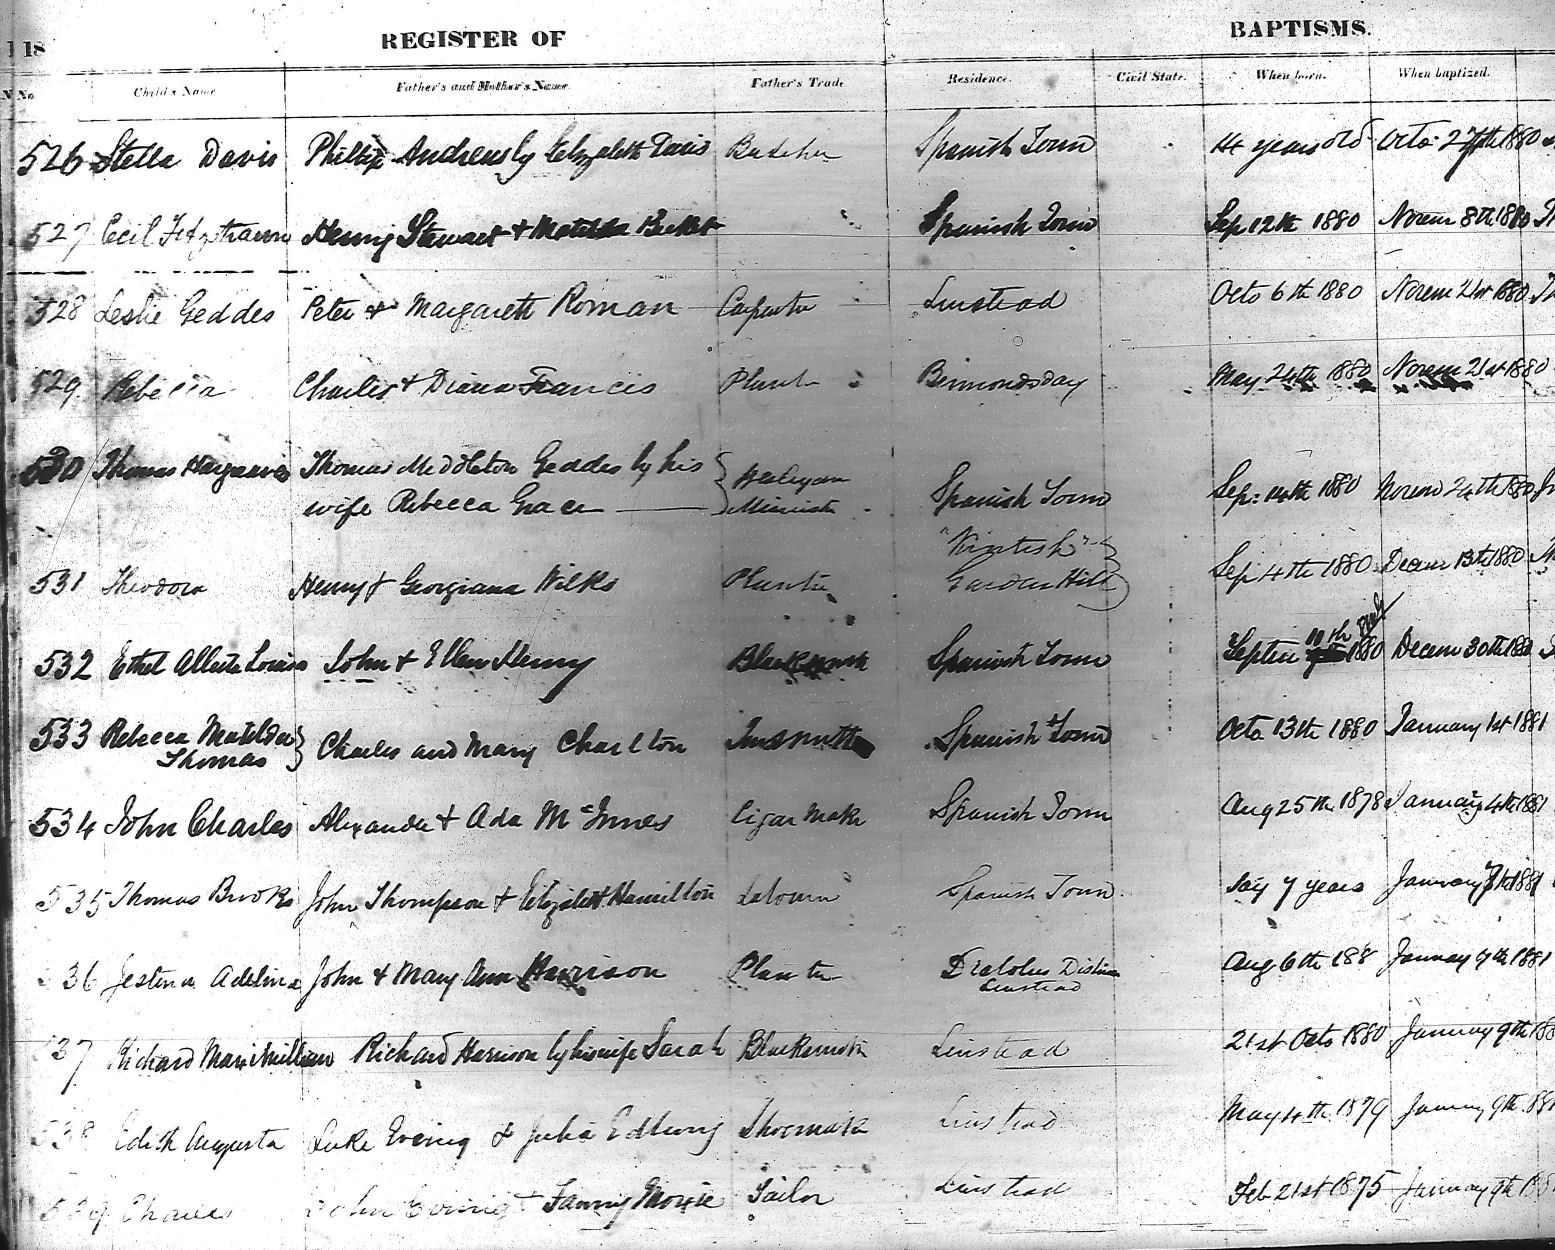 118
REGISTER OF BAPTISMS.
No. Child's Name Father's and Mother's Name Father's Trade Residence. Civil State. When born. When baptized.
526 Stella Davis Phillip Andrews by Elizabeth Davis Butcher Spanish Town 14 years old Octo 27th 1880
527 Cecil Henry Stewart + Matilda Becket Spanish Town Sep 12th 1880 Novem 8th 1880
528 Leslie Geddes Peter + Margareth Roman Carpenter Linstead Octo 6th 1880 Novem 21st 1880
529 Rebecca Charles + Diana Francis Planter May 24th 1880 Novem 21st 1880
530 Thomas Hargreaves Thomas Middleton Geddes by his
wife Rebecca Grace Wesleyan Minister Spanish Town Sep: 14th 1880 Novem 24th 1880
531 Theodora Henry + Georgiana Wilks Planter Garden Hill Sep 4th 1880 Decem 13th 1880
532 Ethel Alberta Louisa John + Ellen Henry Blacksmith Spanish Town Septem 10th 1880 Decem 30th 1880
533 Rebecca Matilda
Thomas Charles and Mary Charlton Tinsmith Spanish Town Octo 13th 1880 January 1st 1881
534 John Charles Alexander + Ada McInnes Cigar Maker Spanish Town Aug 25th 1878 January 4th 1881
535 Thomas Brooks John Thompson + Elizabeth Hamilton Labourer Spanish Town say 7 years January 1881
536 Jestina Adelina John + Mary Ann Harrison Planter
Linstead Aug 6th 188 January 9th 1881
537 Richard Maximillian Richard Harrison by his wife Sarah Blacksmith Linstead 21st Octo 1880 January 9th
538 Edith Augusta Luke Ewing + Julia Shoemaker Linstead May 4th 1879 January 9th 1881
539 Charles John Ewing + Fanny Tailor Linstead Feb 21st 1875 January 9th